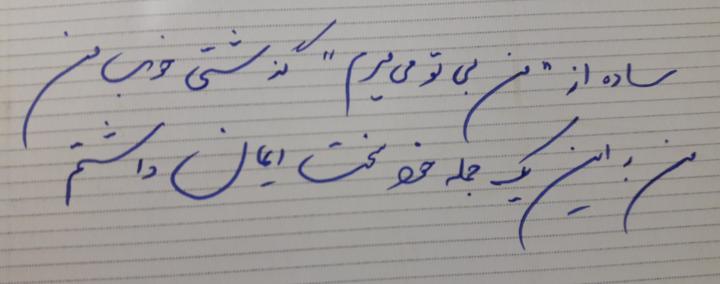 ساده از "من بی تو می‌میرم" گذشتی خوب من
من به این یک جمله خود سخت ایمان داشتم